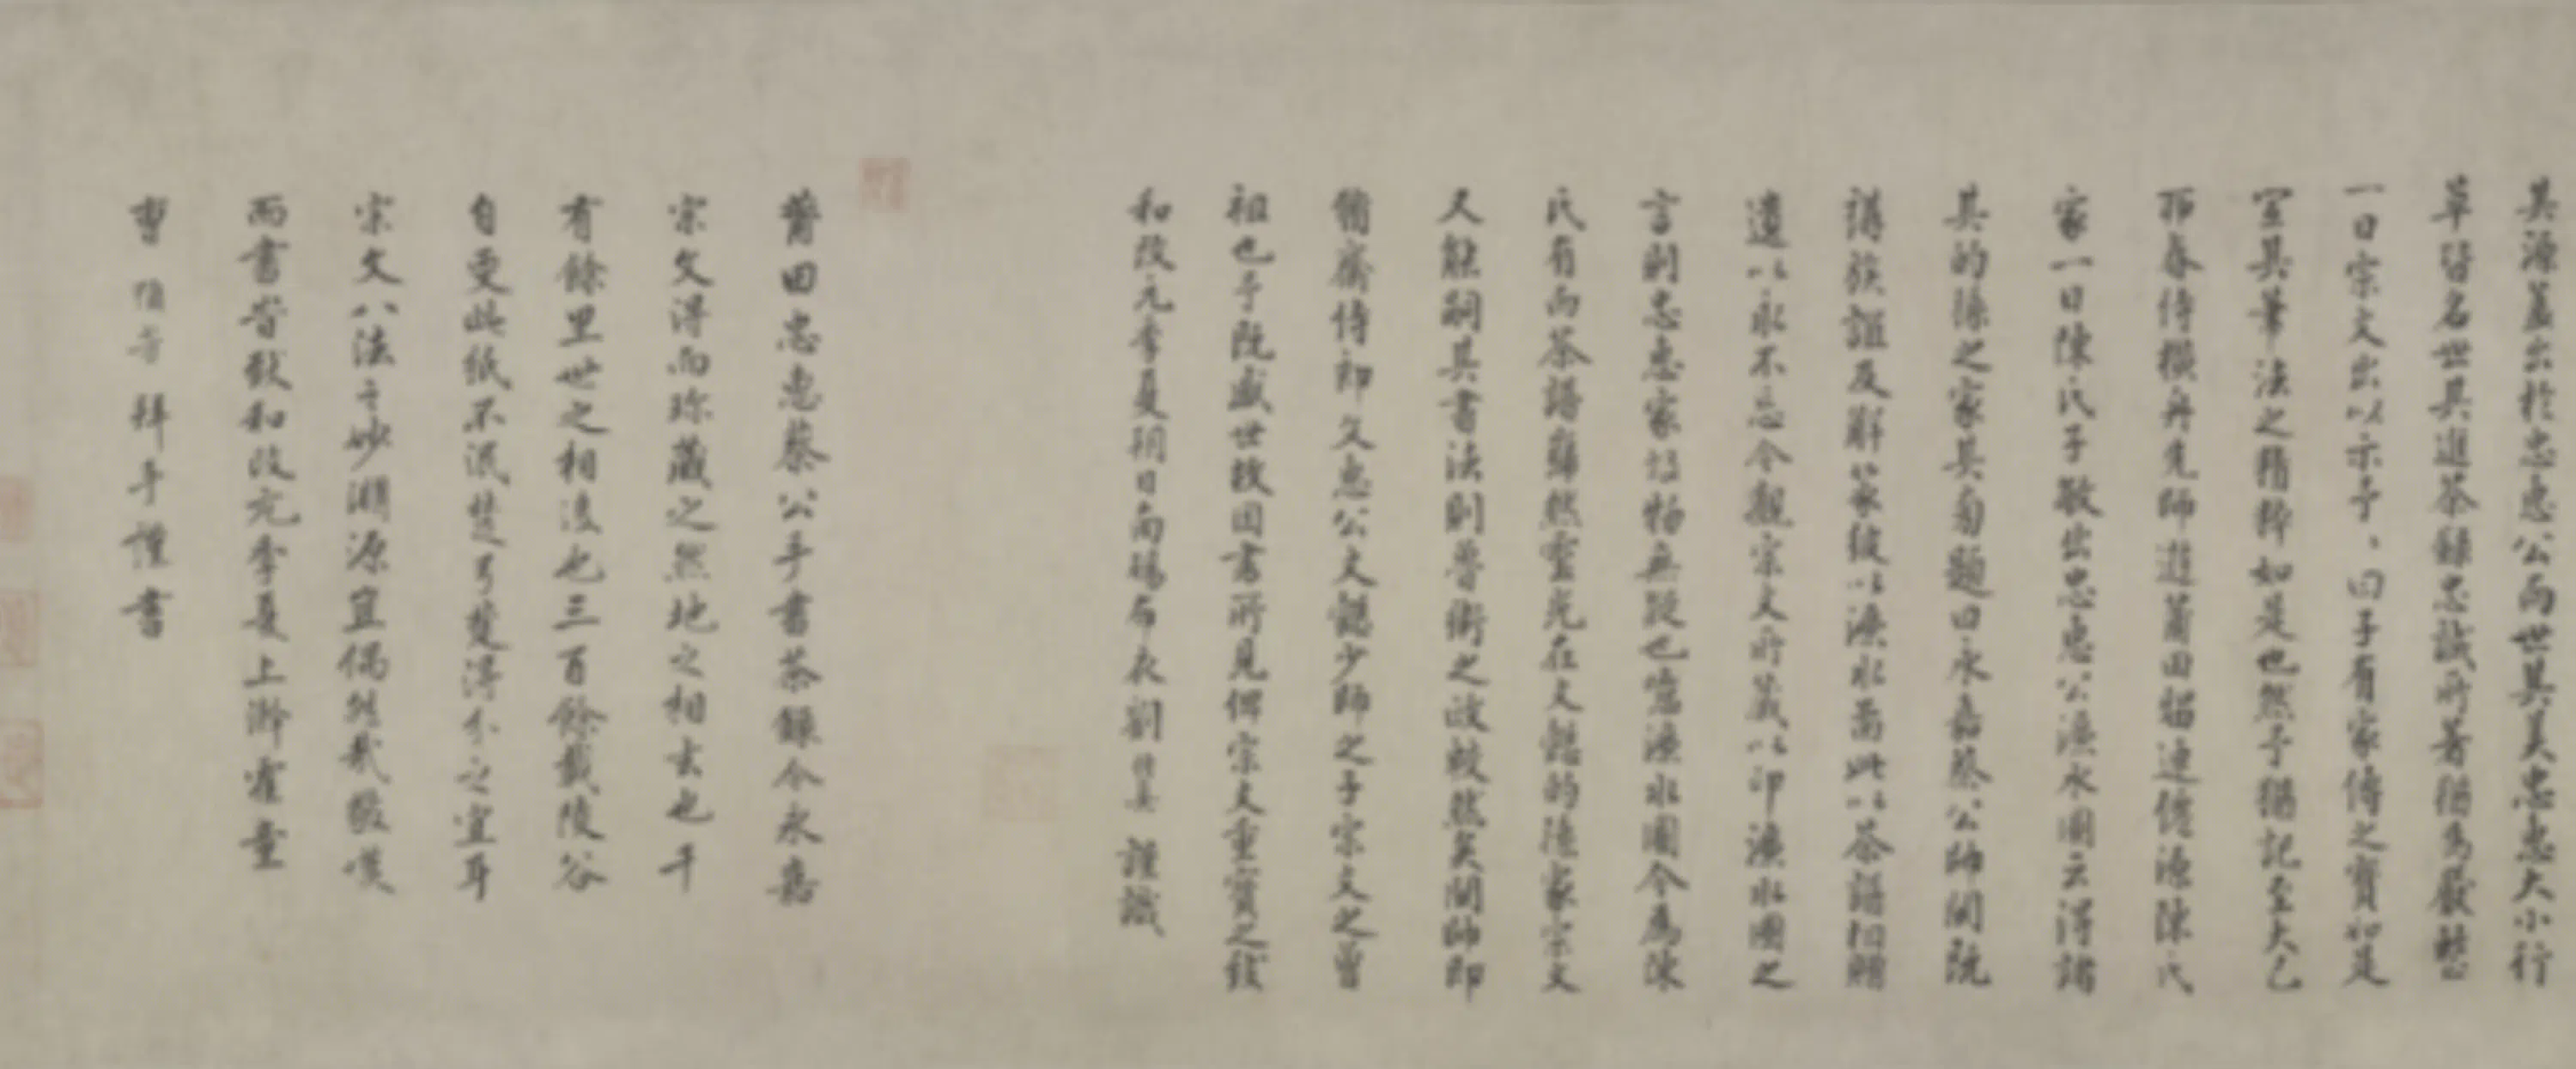 其源蓋出於忠惠公而世其美忠惠大小行
草皆名世其進茶錄忠誠所著猶為嚴慤
一日宗文出以示予、曰子有家傳之寶如是
宜其筆法之精粹如是也然予猶記至大己
酉春侍櫟舟先師遊莆田貂連僑漁陳氏
家一日陳氏子敬出忠惠公漁水圖云得諸
其的孫之家其前題曰永嘉蔡公師閒阮
講族誼及辭公家彼以漁水圖此以茶譜相贈
遺以永不忘今觀宗文所藏以印漁水圖之
言則忠惠家旧物無疑也噫漁水圖今為陳
氏有而茶譜巋然靈光在文懿的孫家宗文
又能嗣其書法則魯衛之政較然矣閒師即
備齋侍郎久惠公文懿少師之子宗文之曾
祖也予既感世故因書所見俾宗文重寶之致
和改元季夏朔日南陽布衣劉 謹識
莆田忠惠蔡公手書茶錄今永嘉
宗文得而珍藏之然地之相去也千
有餘里世之相後也三百餘載陵谷
自更此紙不泯楚弓楚得介之宜耳
宗文八法之妙淵源豈偶然哉敬嘆
而書昔致和改元季夏上澣霍童
曹 拜手謹書